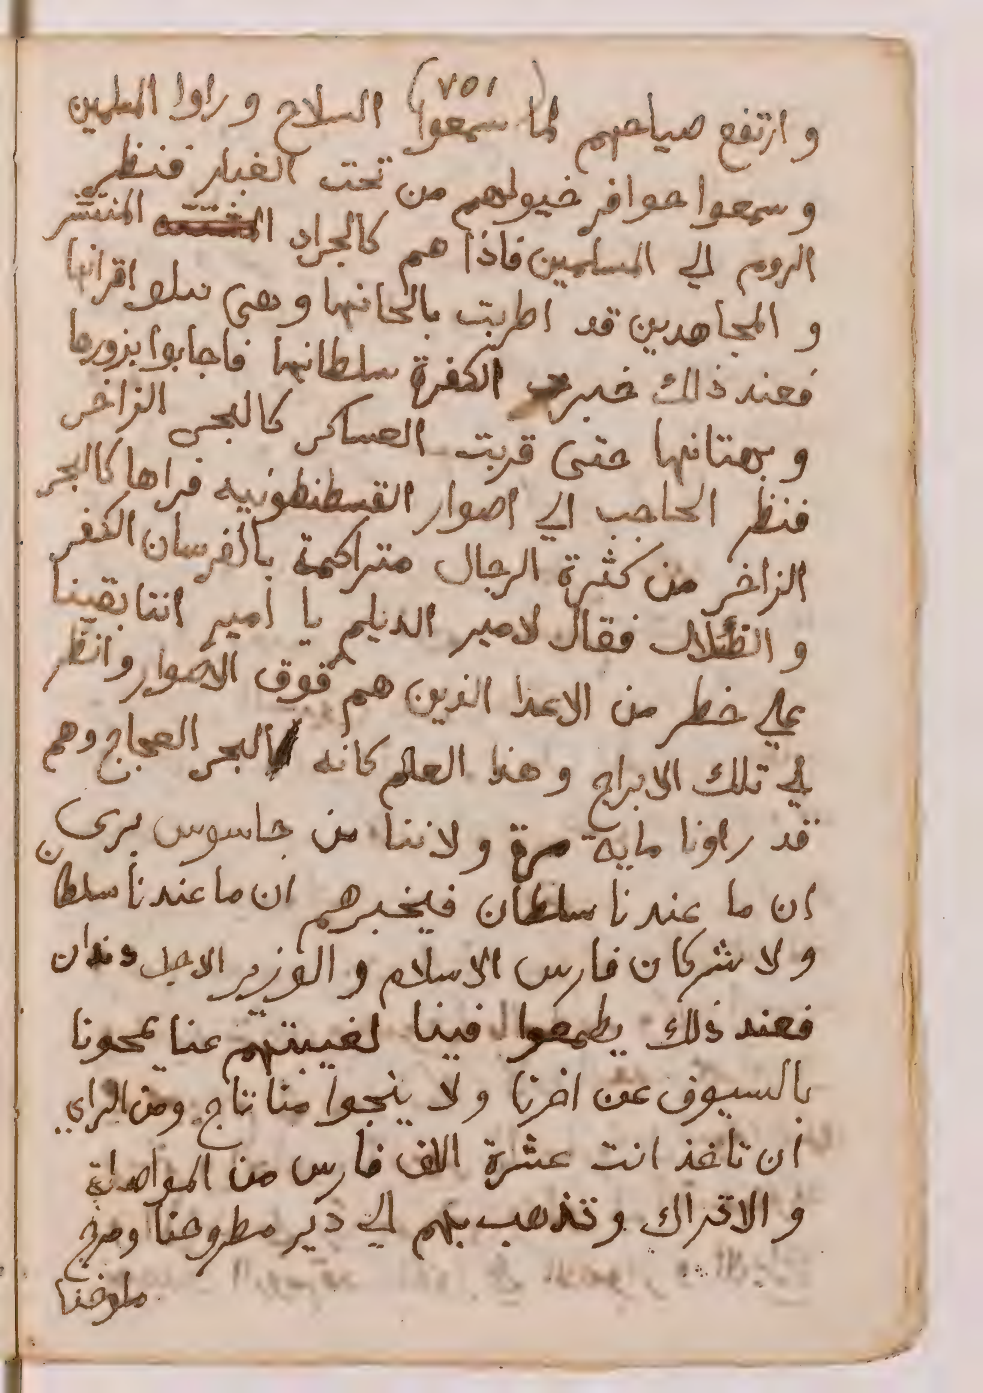 (٧٥١)
و ارتفع صياحهم لما سمعوا السلاح و راوا المسلمين
و سمعوا حوافر خيولهم من تحت الغبار فنظر
الروم الي المسلمين فاذا هم كالجراد المنتشر
و المجاهدين قد اطربت بالحانها و هى اقرانها
فعند ذلك الكفرة سلطانها فاجابوا بزورها
و بهتانها حتى قربت العساكر كالبحر الزاخر
فنظر الحاجب الي اصوار القسطنطونيه فراها كالبحر
الزاخر من كثرة الرجال متراكمة بالفرسان الكفر
و الظلال فقال لامير الديلم يا امير اننا بقينا
علي خطر من الاعدا الذين هم فوق الاصوار و انظر
لي تلك الابراج و هذا العالم كانه البحر العجاج وهم
قد راونا ماية مرة و لاننا من جاسوس يرى
ان ما عندنا سلطان فيخبرهم ان ما عندنا سلطان
و لا شركان فارس الاسلام و الوزير الاجل دندان
فعند ذلك يطمعوا فينا لغيبتهم عنا يمحونا
بالسيوف عن اخرنا و لا ينجوا منا ناج ومن الراي
ان تاخذ انت عشرة الاف فارس من المواصلة
و الاتراك و تذهب بهم الي دير مطروحنا ومرج
ملوخنا